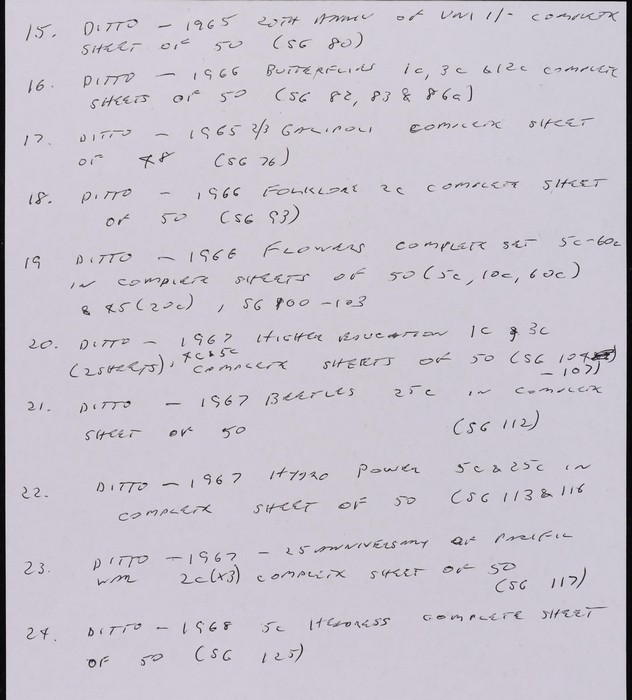 15. DITTO - 1965 20TH ANNIV OF UNI 1/- COMPLETE
SHEET OF 50 (SG 80)
16. DITTO - 1966 BUTTERFLIES 1c, 3c & 12c COMPLETE
SHEETS OF 50 (SG 82, 83 & 86a)
17. DITTO - 1965 2/3 GALIPOLI COMPLETE SHEET
OF 48 (SG 76)
18. DITTO - 1966 FOLKLORE 2c COMPLETE SHEET
OF 50 (SG 93)
19 DITTO - 1966 FLOWERS COMPLETE SET 5c-60c
IN COMPLETE SHEETS OF 50 (5c, 10c, 60c)
& 45 (20c), SG 100-103
20. DITTO - 1967 HIGHER EDUCATION 1c & 3c
(2 SHEETS), 4c & 5c COMPLETE SHEETS OF 50 (SG 104
- 107)
21. DITTO - 1967 BEETLES 25c IN COMPLETE
SHEET OF 50 (SG 112)
22. DITTO - 1967 HYDRO POWER 5c & 25c IN
COMPLETE SHEET OF 50 (SG 113 & 116
23. DITTO - 1967 - 25 ANNIVERSARY OF PACIFIC
WAR 2c (x3) COMPLETE SHEET OF 50
(SG 117)
24. DITTO - 1968 5c HEADRESS COMPLETE SHEET
OF 50 (SG 125)